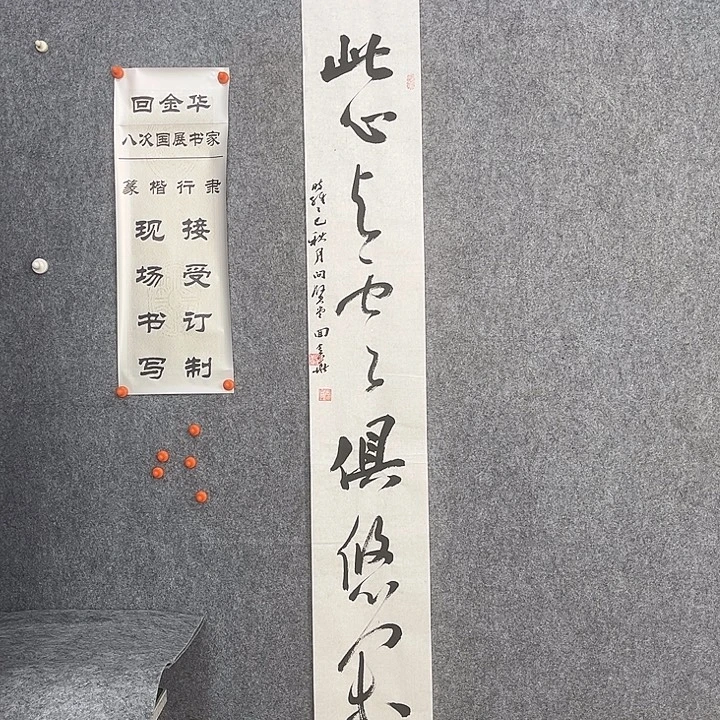 回金华
八次国展书家
篆楷行隶
现场书写
接受订制
此心与俱悠
时维乙巳秋月问贤堂回金华